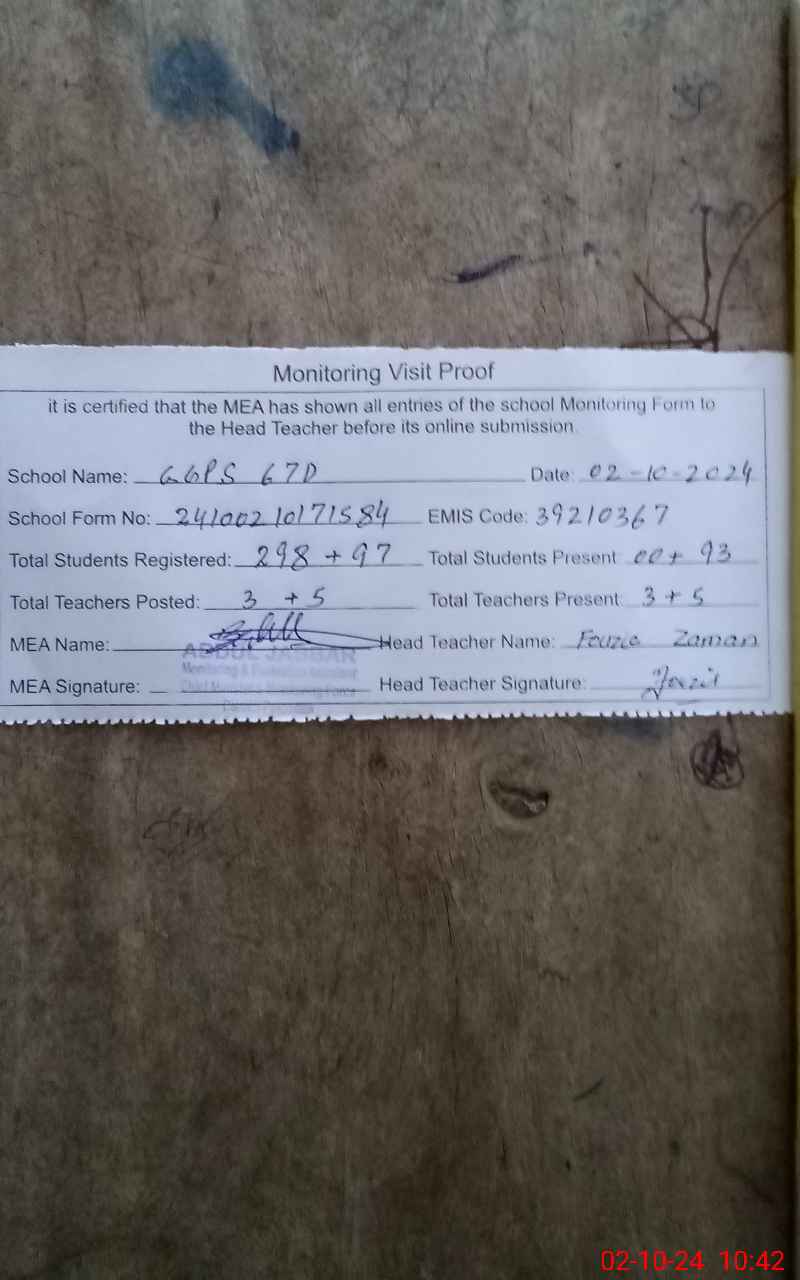 Monitoring Visit Proof
it is certified that the MEA has shown all entries of the school Monitoring Form to
the Head Teacher before its online submission.
School Name: GGPS 67D Date: 02-10-2024
School Form No: 24100210171584 EMIS Code: 39210367
Total Students Registered: 298 + 97 Total Students Present 00 + 93
Total Teachers Posted: 3 + 5 Total Teachers Present 3 + 5
MEA Name: Head Teacher Name: Fouzia Zaman
ABDUL JABBAR
Monitoring & Evaluation Assistant
MEA Signature: Head Teacher Signature: Fouzia
02-10-24 10:42